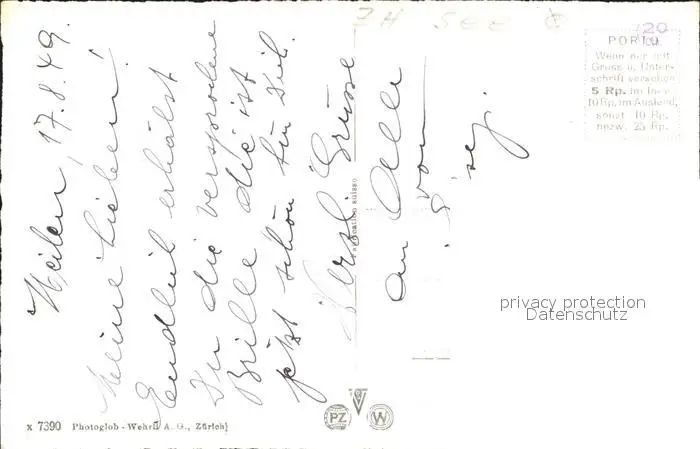 Meilen, 17.8.49.
Meine Lieben!
Endlich erhälst
Du die versprochene
Brille die ist
jetzt schön für Dich.
Herzl. Grüsse
an Alle
von
ZH SEE
20
PORTO
Wenn nur mit
Gruss u. Unter-
schrift versehen
5 Rp. im Inn.
10 Rp. im Ausland,
sonst 10 Rp.
bezw. 25 Rp.
Fabrication suisse
privacy protection
Datenschutz
x 7390 Photoglob-Wehrli A. G., Zürich
PZ
W